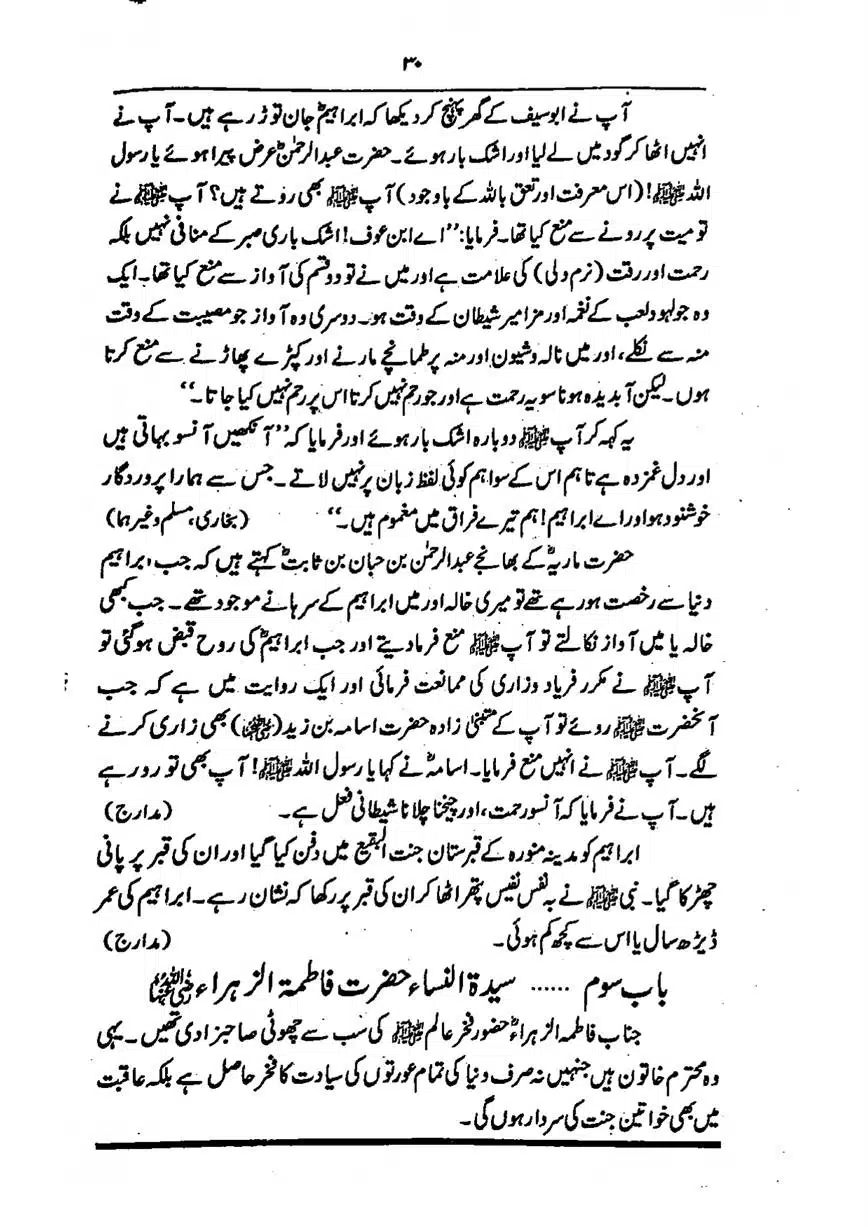 ۳۰
آپ نے ابوسیف کے گھر پہنچ کر دیکھا کہ ابراہیمؓ جان توڑ رہے ہیں۔ آپ نے
انہیں اٹھا کر گود میں لے لیا اور اشک بار ہوئے۔ حضرت عبدالرحمٰنؓ عرض پیرا ہوئے یا رسول
اللہ ﷺ! (اس معرفت اور تعلق باللہ کے باوجود) آپ ﷺ بھی روتے ہیں؟ آپ ﷺ نے
تو میت پر رونے سے منع کیا تھا۔ فرمایا: ’’اے ابن عوف! اشک باری صبر کے منافی نہیں بلکہ
رحمت اور رقت (نرم دلی) کی علامت ہے اور میں نے تو دو قسم کی آواز سے منع کیا تھا۔ ایک
وہ جو لہو و لعب کے نغمہ اور مزامیر شیطان کے وقت ہو۔ دوسری وہ آواز جو مصیبت کے وقت
منہ سے نکلے، اور میں نالہ و شیون اور منہ پر طمانچے مارنے اور کپڑے پھاڑنے سے منع کرتا
ہوں۔ لیکن آبدیدہ ہونا سو یہ رحمت ہے اور جو رحم نہیں کرتا اس پر رحم نہیں کیا جاتا۔‘‘
یہ کہہ کر آپ ﷺ دوبارہ اشک بار ہوئے اور فرمایا کہ ’’آنکھیں آنسو بہاتی ہیں
اور دل غمزدہ ہے تاہم اس کے سوا ہم کوئی لفظ زبان پر نہیں لاتے۔ جس سے ہمارا پروردگار
خوشنود ہو اور اے ابراہیم! ہم تیرے فراق میں مغموم ہیں۔‘‘ (بخاری، مسلم وغیرہما)
حضرت ماریہؓ کے بھانجے عبدالرحمٰن بن حبان بن ثابتؓ کہتے ہیں کہ جب ابراہیم
دنیا سے رخصت ہو رہے تھے تو میری خالہ اور میں ابراہیم کے سرہانے موجود تھے۔ جب کبھی
خالہ یا میں آواز نکالتے تو آپ ﷺ منع فرما دیتے اور جب ابراہیمؓ کی روح قبض ہوگئی تو
آپ ﷺ نے مکرر فریاد وزاری کی ممانعت فرمائی اور ایک روایت میں ہے کہ جب
آنحضرت ﷺ روئے تو آپ کے متبنیٰ زادہ حضرت اسامہ بن زید (رضی اللہ عنہ) بھی زاری کرنے
لگے۔ آپ ﷺ نے انہیں منع فرمایا۔ اسامہؓ نے کہا یا رسول اللہ ﷺ! آپ بھی تو رو رہے
ہیں۔ آپ نے فرمایا کہ آنسو رحمت، اور چیخنا چلانا شیطانی فعل ہے۔ (مدارج)
ابراہیم کو مدینہ منورہ کے قبرستان جنت البقیع میں دفن کیا گیا اور ان کی قبر پر پانی
چھڑکا گیا۔ نبی ﷺ نے بہ نفس نفیس پتھر اٹھا کر ان کی قبر پر رکھا کہ نشان رہے۔ ابراہیم کی عمر
ڈیڑھ سال یا اس سے کچھ کم ہوئی۔ (مدارج)
باب سوم ...... سیدۃ النساء حضرت فاطمۃ الزہراء رضی اللہ عنہا
جناب فاطمہ الزہراءؓ حضور فخر عالم ﷺ کی سب سے چھوٹی صاحبزادی تھیں۔ یہی
وہ محترم خاتون ہیں جنہیں نہ صرف دنیا کی تمام عورتوں کی سیادت کا فخر حاصل ہے بلکہ عاقبت
میں بھی خواتین جنت کی سردار ہوں گی۔